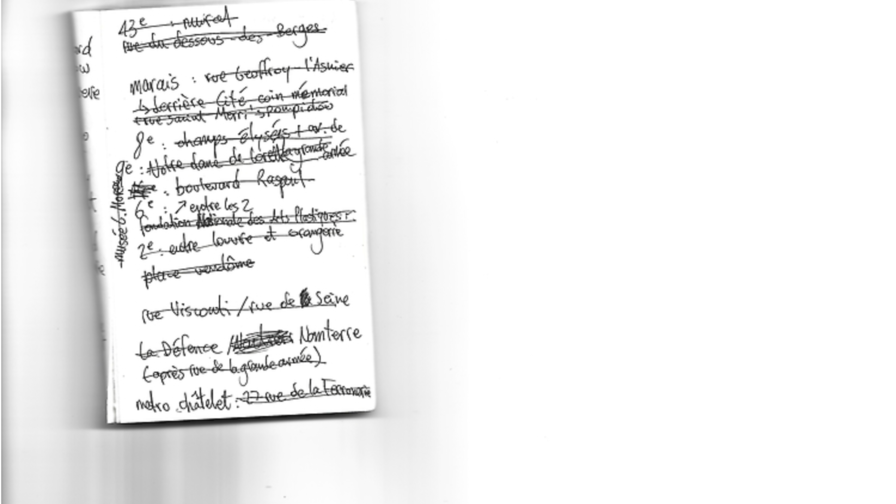 13e :
rue du dessous des Berges
marais : rue Geoffroy l'Asnier
↳ derrière Cité, coin mémorial
rue saint Merri, Pompidou
8e : champs élysées + av. de
la grande armée
9e : Notre dame de Lorette
: boulevard Raspail
6e : ↗ entre les 2
fondation Nationale des Arts Plastiques
2e : entre louvre et orangerie
place vendôme
rue Visconti / rue de Seine
La Défence / Nanterre
(après rue de la grande armée)
metro châtelet : 27 rue de la Ferronerie
musée G. Moreau